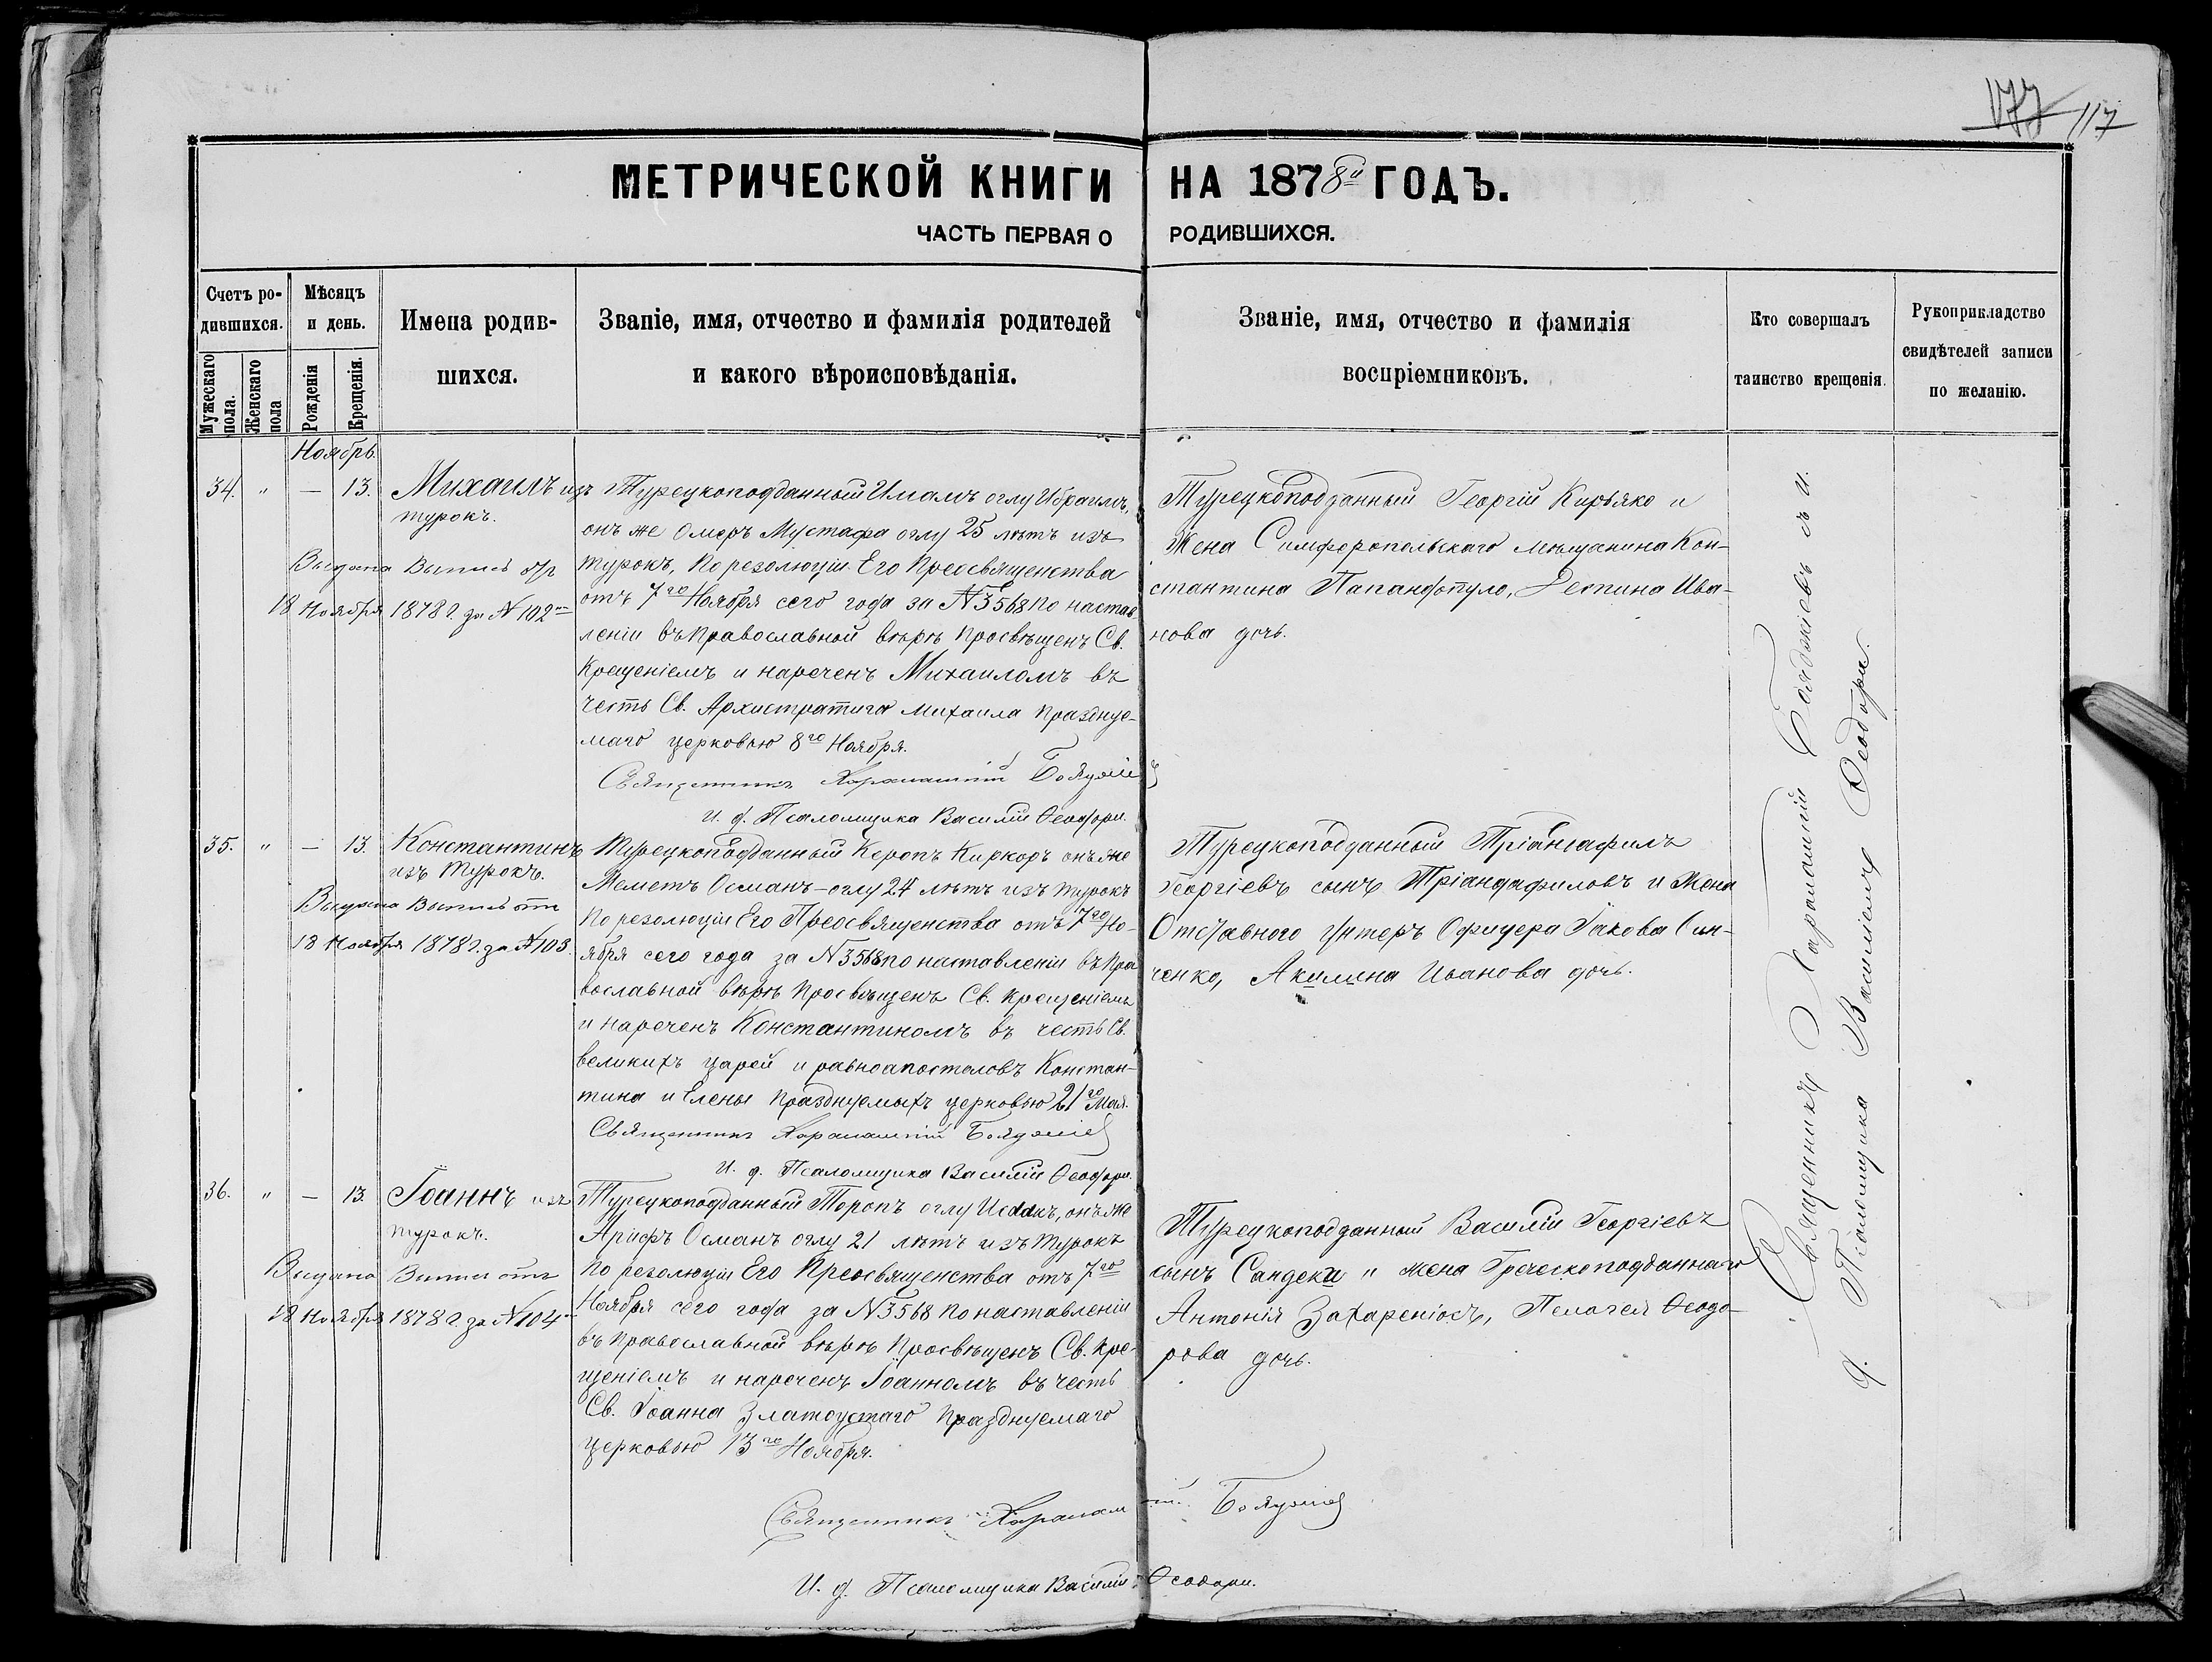 177 117
МЕТРИЧЕСКОЙ КНИГИ НА 1878й ГОДЪ.
ЧАСТЬ ПЕРВАЯ О РОДИВШИХСЯ.
Счетъ ро-
дившихся.
Мужескаго пола.
Женскаго пола
Мѣсяцъ
и день.
Рожденія
Крещенія.
Имена родив-
шихся.
Званіе, имя, отчество и фамилія родителей
и какого вѣроисповѣданія.
Званіе, имя, отчество и фамилія
воспріемниковъ.
Кто совершалъ
таинство крещенія.
Рукоприкладство
свидѣтелей записи
по желанію.
Ноябрь.
34. " — 13. Михаилъ изъ
турокъ.
Выдана Выпись отъ
18 Ноября 1878 г. за № 102
Турецкоподданный Имамъ оглу Ибрагимъ,
онъ же Омеръ Мустафа оглу 25 лѣтъ изъ
турокъ, по резолюціи Его Преосвященства
отъ 7го Ноября сего года за № 3568 по настав
леніи въ Православной вѣрѣ просвѣщенъ Св.
Крещеніемъ и нареченъ Михаиломъ въ
честь Св. Архистратига Михаила празднуе-
маго церковью 8го Ноября.
Священникъ Харалампій
И. д. Псаломщика Василій Ѳеодори.
Турецкоподданный Георгій Кирьяко и
Жена Симферопольскаго мѣщанина Кон-
стантина Папандопуло, Деспина Ива-
нова дочь.
35. " — 13. Константинъ
изъ Турокъ.
Выдана Выпись отъ
18 Ноября 1878 г. за № 103.
Турецкоподданный Керопъ Киркоръ онъ же
Меметъ Османъ-оглу 24 лѣтъ изъ турокъ
по резолюціи Его Преосвященства отъ 7го Но-
ября сего года за № 3568 по наставленіи въ Пра
вославной вѣрѣ просвѣщенъ Св. крещеніемъ
и нареченъ Константиномъ въ честь Св.
великихъ царей и равноапостоловъ Констан-
тина и Елены празднуемыхъ церковью 21го Мая.
Священникъ Харалампій
И. д. Псаломщика Василій Ѳеодори.
Турецкоподданный Тріантафилъ
Георгіевъ сынъ Тріандафиловъ и Жена
Отставного Унтеръ Офицера Іакова Син-
ченко, Акилина Иванова дочь.
36. " — 13. Іоаннъ изъ
турокъ.
Выдана Выпись отъ
18 Ноября 1878 г. за № 104
Турецкоподданный Торопъ оглу Исаакъ, онъ же
Арифъ Османъ оглу 21 лѣтъ изъ турокъ
по резолюціи Его Преосвященства отъ 7го
Ноября сего года за № 3568 по наставленіи
въ Православной вѣрѣ просвѣщенъ Св. кре-
щеніемъ и нареченъ Іоанномъ въ честь
Св. Іоанна Златоустаго празднуемаго
церковью 13го Ноября.
Турецкоподданный Василій Георгіевъ
сынъ Сандеки и жена Греческоподданнаго
Антонія Захареніосъ, Пелагея Ѳеодо-
рова дочь.
Священникъ Харалампій
И. д. Псаломщика Василій Ѳеодори.
Священникъ Харалампій съ и.
д. Псаломщика Василіемъ Ѳеодори.